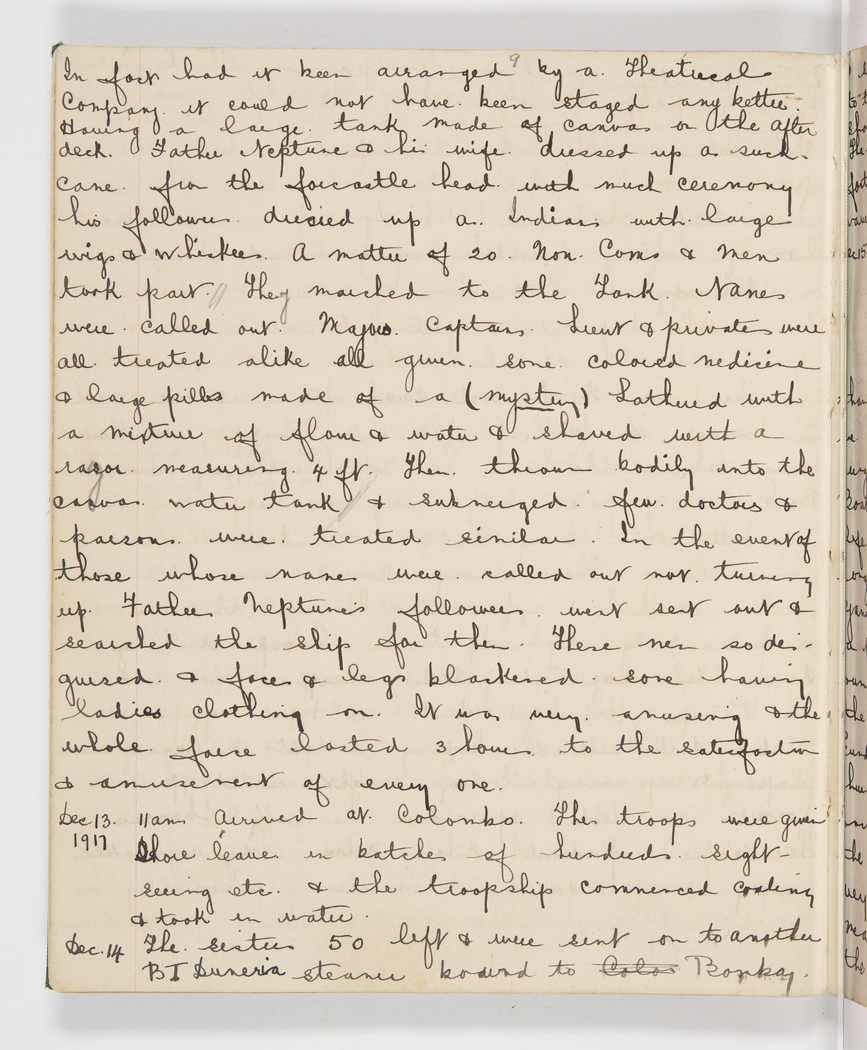 9
In fact had it been arranged by a. Theatrical
Company. it could not have. been staged any better.
Having a large. tank made of canvas on the after
deck. Father Neptune & his wife. dressed up as such.
came. from the forcastle head. with much ceremony
his followers. dressed up as. Indians with. large
wigs & whiskers. A matter of 20. Non. Coms & men
took part. They marched to the Tank. Names
were. called out. Majors. Captains. Lieut & privates were
all. treated alike all given. some. colored medicine
& large pills made of a (mystery) Lathered with
a mixture of flour & water & shaved with a
razor. measuring. 4 ft. Then. thrown bodily into the
canvas. water tank & submerged. few. doctors &
parsons. were. treated similar. In the event of
those whose names were. called out not. turning
up. Father Neptune's followers. went sent out &
searched the ship for them. These men so dis-
guised. & faces & legs blackened. some having
ladies clothing on. It was very. amusing & the
whole. farse lasted 3 hours to the satisfaction
& amusement of every one.
Dec 13. 11am arrived at Colombo. The troops were given
1917 Shore leave in batches of hundreds. sight-
seeing etc. & the troopship commenced coaling
& took in water.
Dec. 14 The. sisters 50 left & were sent on to another
BI Duneria steamer bound to Colo Bombay.